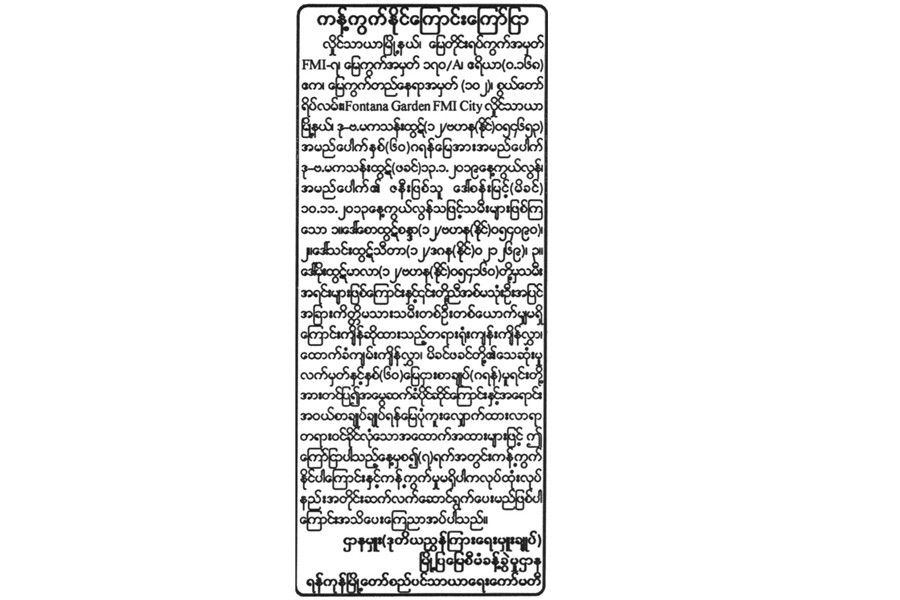 ကန့်ကွက်နိုင်ကြောင်းကြော်ငြာ
လှိုင်သာယာမြို့နယ်၊ မြေတိုင်းရပ်ကွက်အမှတ်
FMI-၇၊ မြေကွက်အမှတ် ၁၇၀/A၊ ဧရိယာ(၀.၁၆၈)
ဧက၊ မြေကွက်တည်နေရာအမှတ် (၁၀၂)၊ စွယ်တော်
ရိပ်လမ်း၊Fontana Garden FMI City လှိုင်သာယာ
မြို့နယ်၊ ဒု-ဗ.မကသန်းထွဋ်(၁၂/ဗဟန(နိုင်)၀၅၄၆၅၃)
အမည်ပေါက်နှစ်(၆၀)ဂရန်မြေအားအမည်ပေါက်
ဒု-ဗ.မကသန်းထွဋ်(ဖခင်)၁၃.၁.၂၀၁၉နေ့ကွယ်လွန်၊
အမည်ပေါက်၏ ဇနီးဖြစ်သူ ဒေါ်စန်းမြင့်(မိခင်)
၁၀.၁၁.၂၀၁၃နေ့ကွယ်လွန်သဖြင့်သမီးများဖြစ်ကြ
သော ၁။ဒေါ်စောထွဋ်စန္ဒာ(၁၂/ဗဟန(နိုင်)၀၅၄၀၉၀)၊
၂။ဒေါ်သင်းထွဋ်သီတာ(၁၂/ဒဂန(နိုင်)၀၂၁၂၆၉)၊ ၃။
ဒေါ်မိုးထွဋ်မာလာ(၁၂/ဗဟန(နိုင်)၀၅၄၁၆၀)တို့မှသမီး
အရင်းများဖြစ်ကြောင်းနှင့်၎င်းတို့ညီအစ်မသုံးဦးအပြင်
အခြားကိတ္တိမသားသမီးတစ်ဦးတစ်ယောက်မျှမရှိ
ကြောင်းကျိန်ဆိုထားသည့်တရားရုံးကျမ်းကျိန်လွှာ၊
ထောက်ခံကျမ်းကျိန်လွှာ၊ မိခင်ဖခင်တို့၏သေဆုံးမှု
လက်မှတ်နှင့်နှစ်(၆၀)မြေငှားစာချုပ်(ဂရန်)မူရင်းတို့
အားတင်ပြ၍အမွေဆက်ခံပိုင်ဆိုင်ကြောင်းနှင့်အရောင်း
အဝယ်စာချုပ်ချုပ်ရန်မြေပုံကူးလျှောက်ထားလာရာ
တရားဝင်ခိုင်လုံသောအထောက်အထားများဖြင့် ဤ
ကြော်ငြာပါသည့်နေ့မှစ၍(၇)ရက်အတွင်းကန့်ကွက်
နိုင်ပါကြောင်းနှင့်ကန့်ကွက်မှုမရှိပါကလုပ်ထုံးလုပ်
နည်းအတိုင်းဆက်လက်ဆောင်ရွက်ပေးမည်ဖြစ်ပါ
ကြောင်းအသိပေးကြေညာအပ်ပါသည်။
ဌာနမှူး(ဒုတိယညွှန်ကြားရေးမှူးချုပ်)
မြို့ပြမြေစီမံခန့်ခွဲမှုဌာန
ရန်ကုန်မြို့တော်စည်ပင်သာယာရေးကော်မတီ